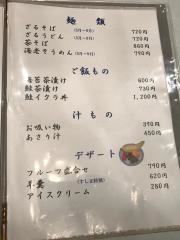 麺類
ざるそば (5月〜9月) 720円
ざるうどん (5月〜9月) 720円
茶そば 860円
海老そうめん (5月〜9月) 790円
ご飯もの
海苔茶漬け 600円
鮭茶漬け 730円
鮭イクラ丼 1,200円
汁もの
お吸い物 390円
あさり汁 450円
デザート
フルーツ盛合せ 790円
羊羹 620円
アイスクリーム 280円